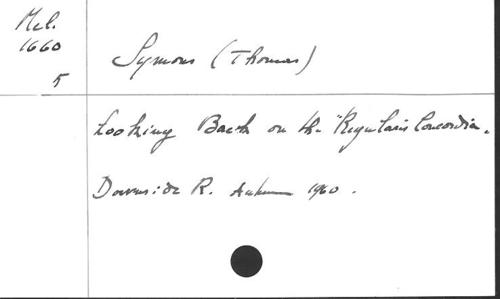 Mel.
1660
5
Symons (Thomas)
Looking Back on the "Regularis Concordia.
Downside R. Autumn 1960.